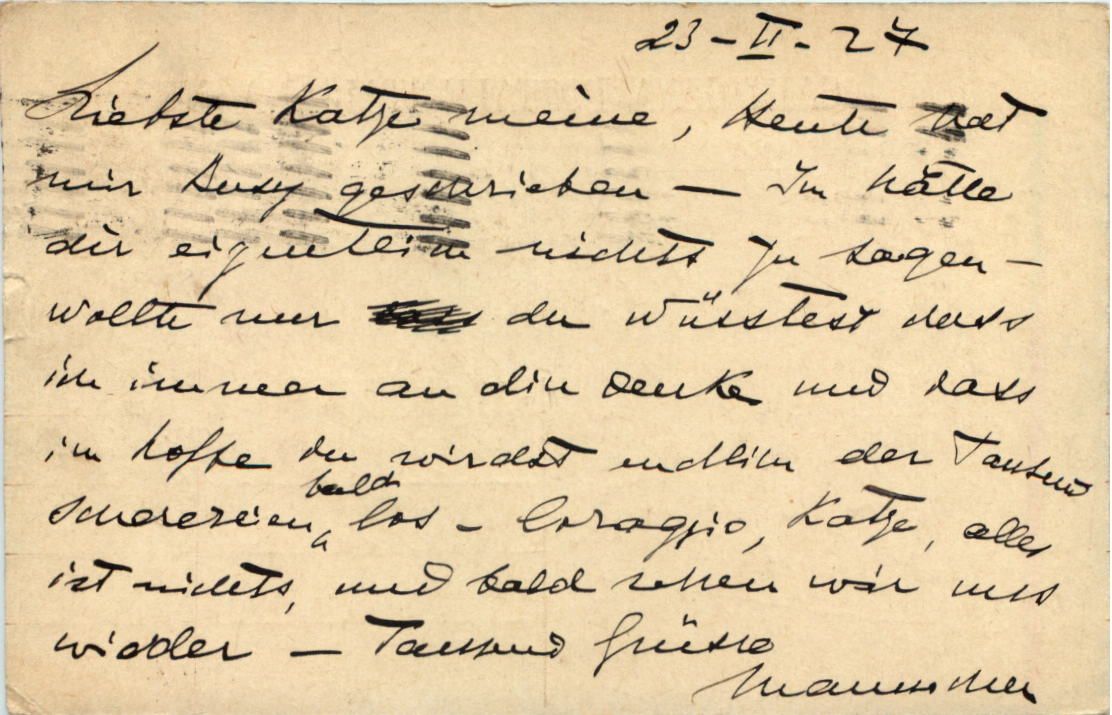 23-II-27
Liebste Katze meine, Heute hat
mir Susy geschrieben — Ich hätte
dir eigentlich nichts zu sagen —
wollte nur du wüsstest dass
ich immer an dich denke und dass
ich hoffe du wirdst endlich der Tausend
schererein bald los - Coraggio, Katze, alles
ist nichts, und bald sehen wir uns
wieder — Tausend Grüsse